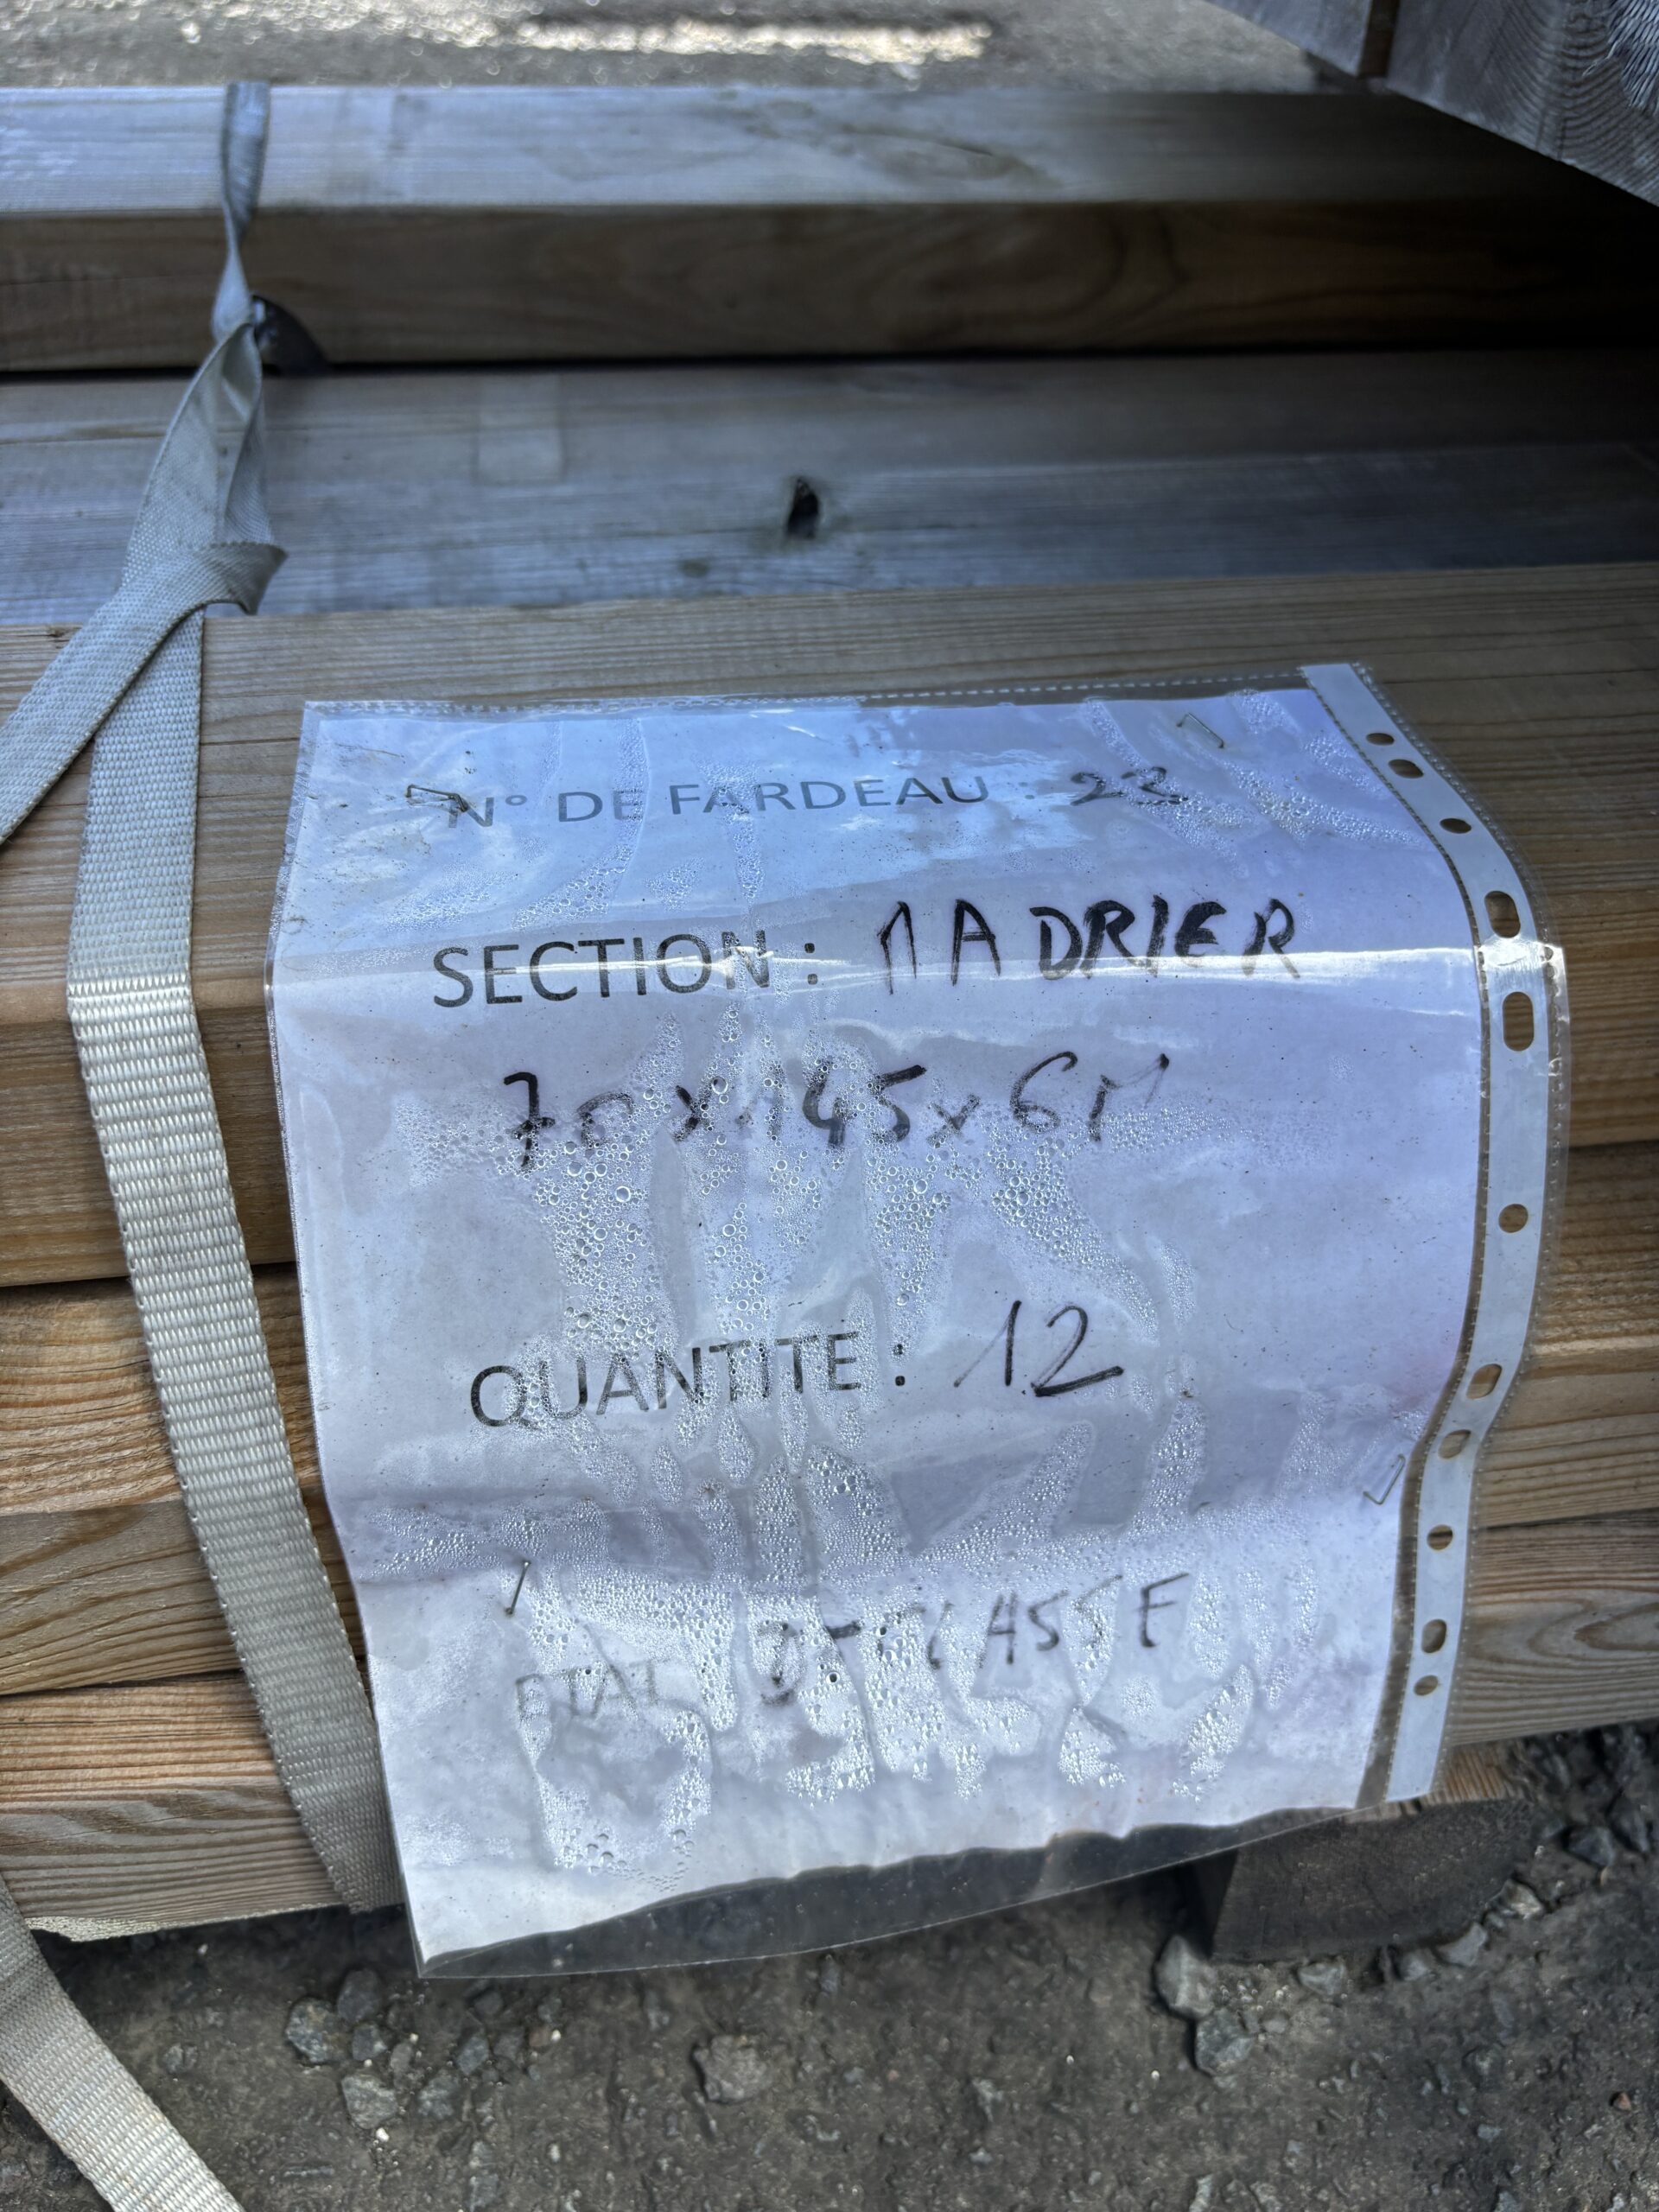 N° DE FARDEAU : 22
SECTION : MADRIER
70 x 145 x 6M
QUANTITE : 12
ETAT DECLASSE